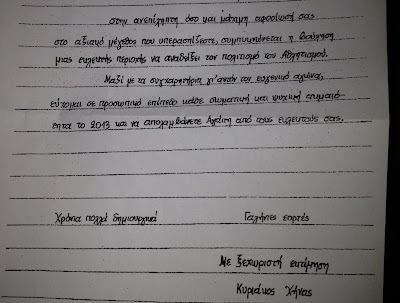 στην ανεπίληπτη όσο και μάχιμη αφοσίωσή σας
στο αξιακό μέγεθος που υπερασπίζεστε, συμπυκνώνεται η βούληση
μιας εκλεκτής περιοχής να αναδείξει τον πολιτισμό του Αθλητισμού.
Μαζί με τα συγχαρητήρια γι'αυτόν τον ευγενικό αγώνα,
εύχομαι σε προσωπικό επίπεδο κάθε σωματική και ψυχική
το 2013 και να απολαμβάνετε Αγάπη από τους εκλεκτούς σας.
Χρόνια πολλά δημιουργικά
Γαλήνιες εορτές
Με ξεχωριστή εκτίμηση
Κυριάκος Χήνας